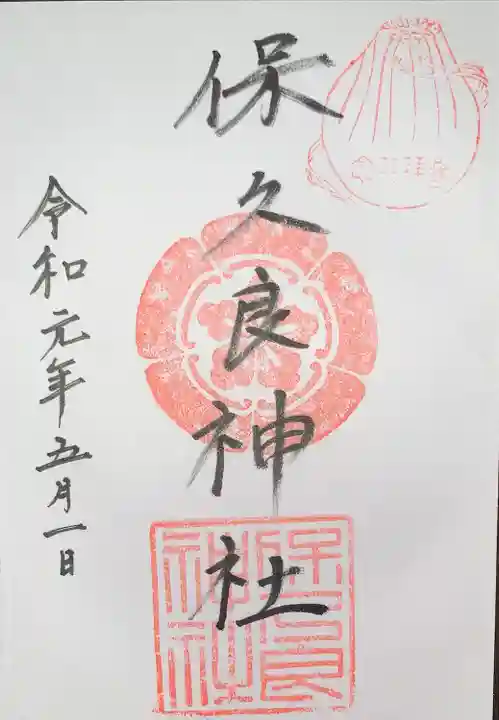 保久良神社
令和元年五月一日
保久良
神社